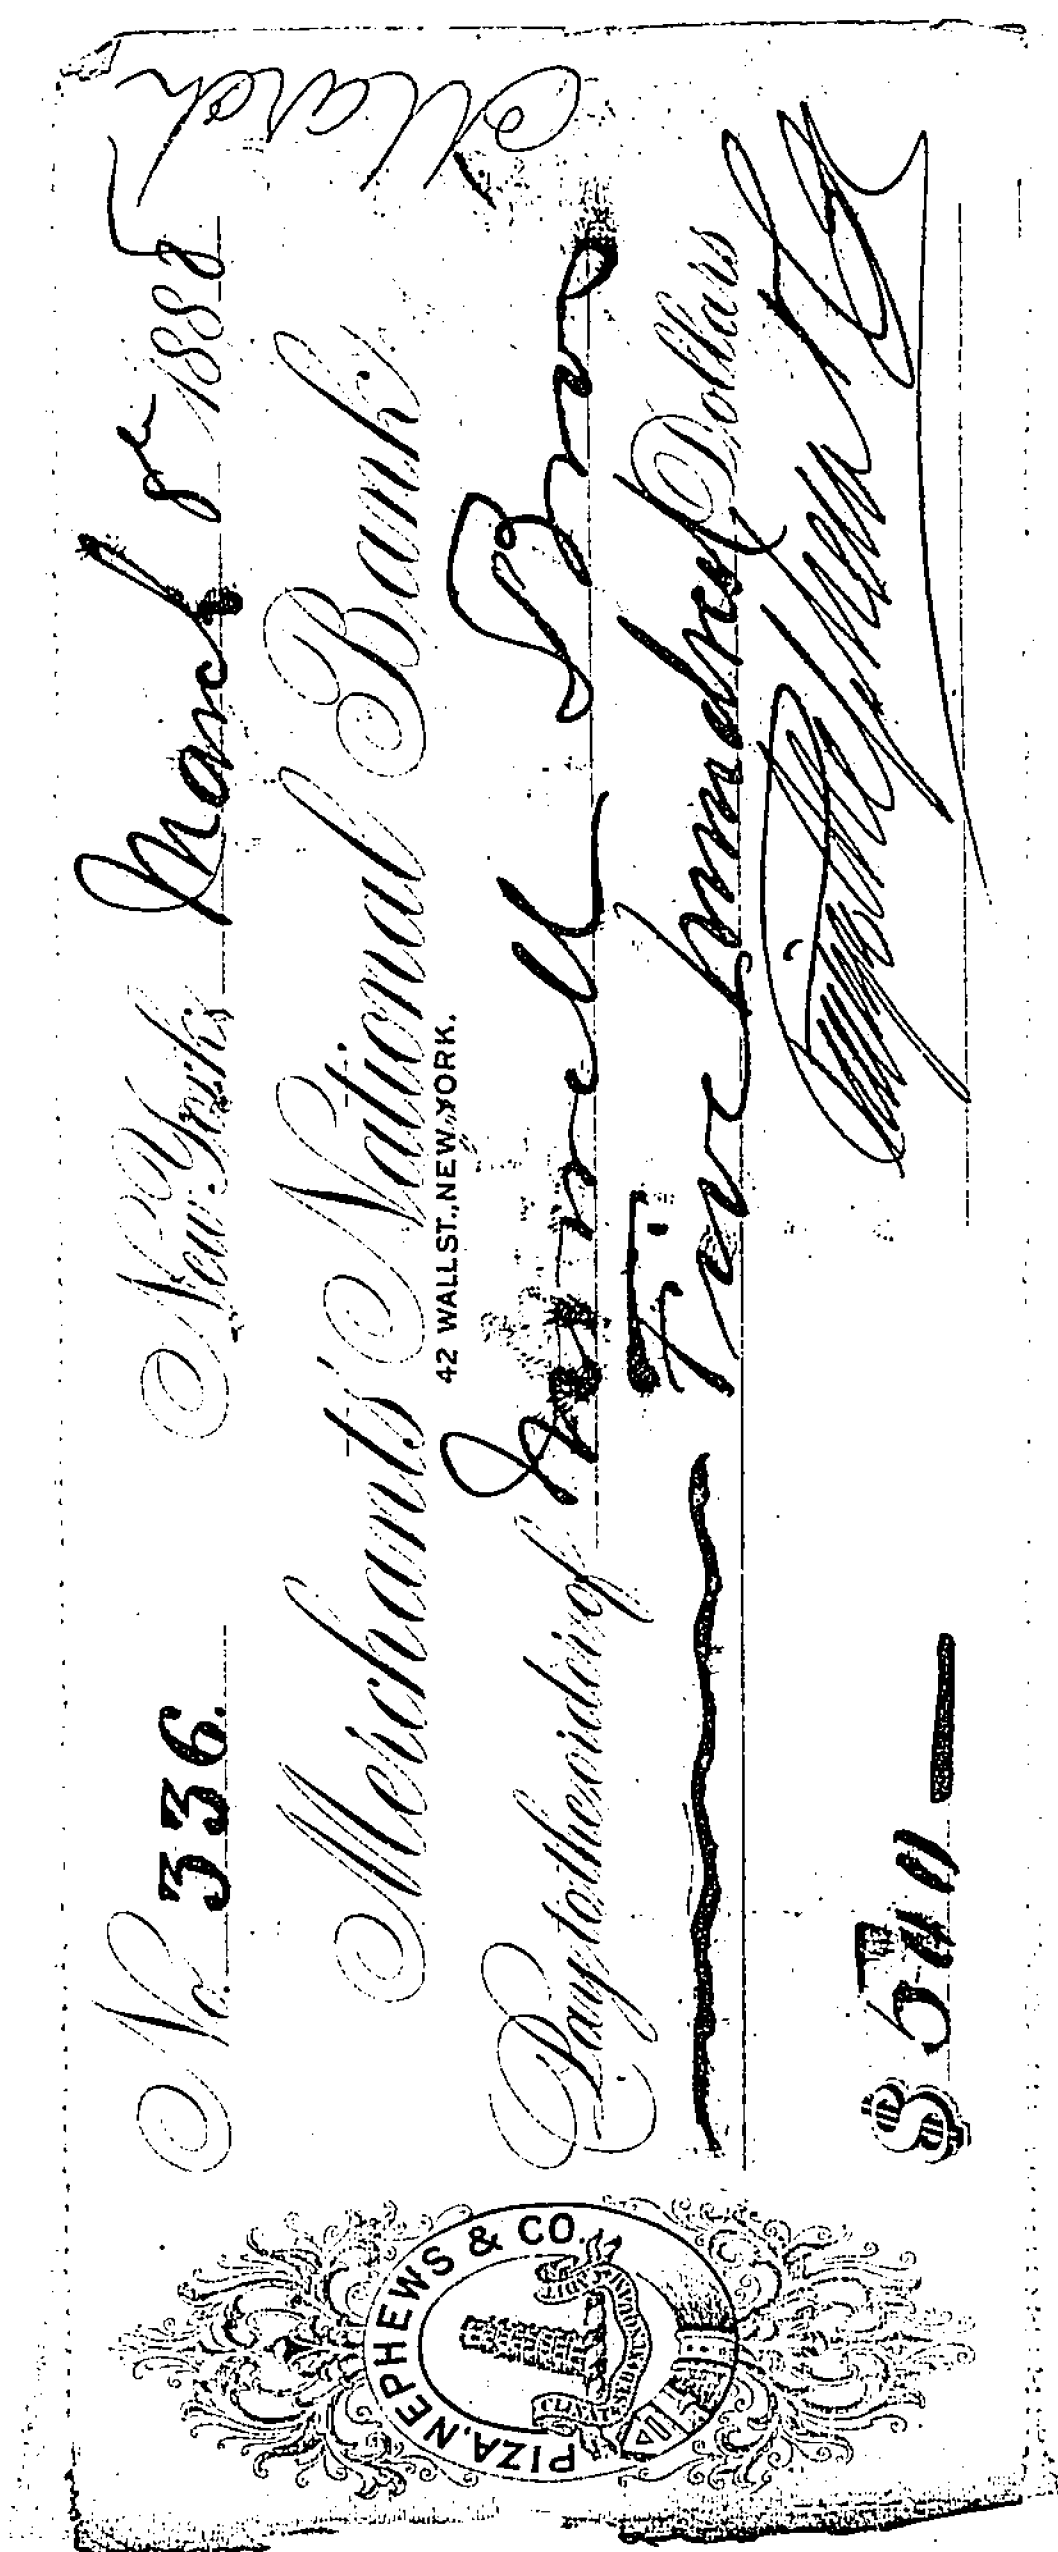 March
No. 336. New York, March 8th 1888
Merchants' National Bank,
42 WALL ST., NEW YORK.
Pay to the order of Bros
Five hundred Dollars
$ 500
PIZA, NEPHEWS & CO.